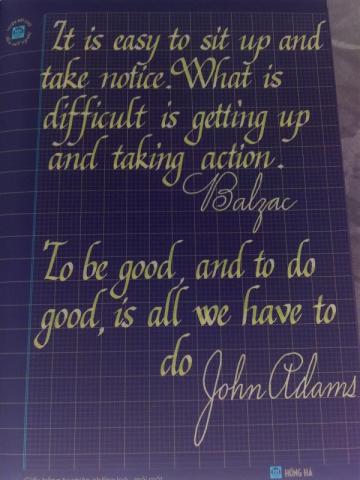 It is easy to sit up and
take notice. What is
difficult is getting up
and taking action.
Balzac
To be good, and to do
good, is all we have to
do
John Adams
HỒNG HÀ